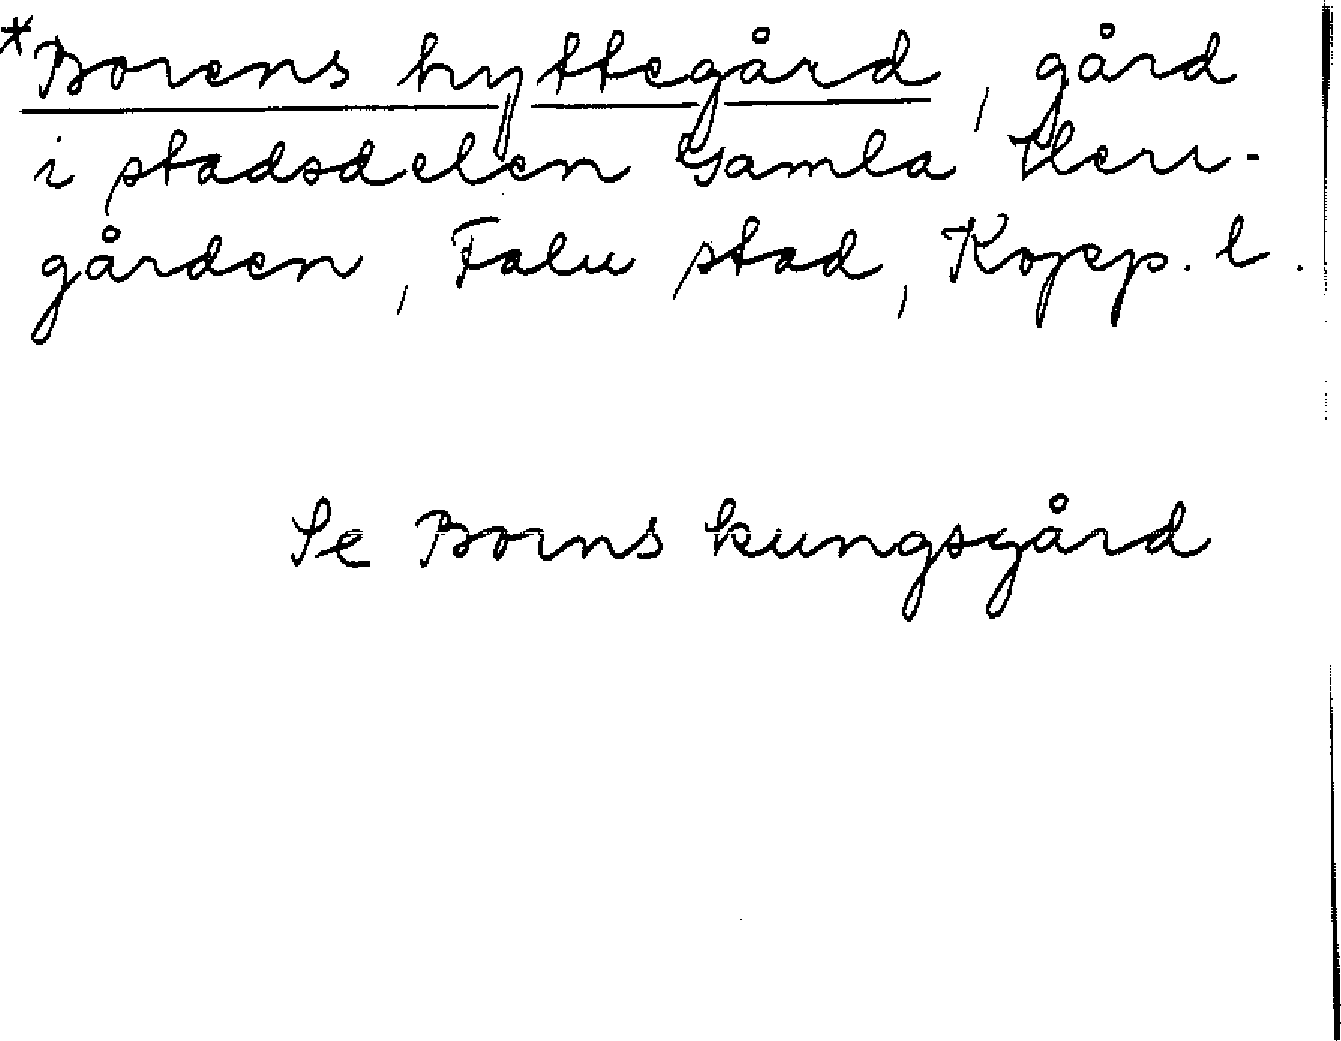 *Borens hyttegård, gård
i stadsdelen Gamla Herr-
gården, Falu stad, Kopp. l.
Se Borns kungsgård